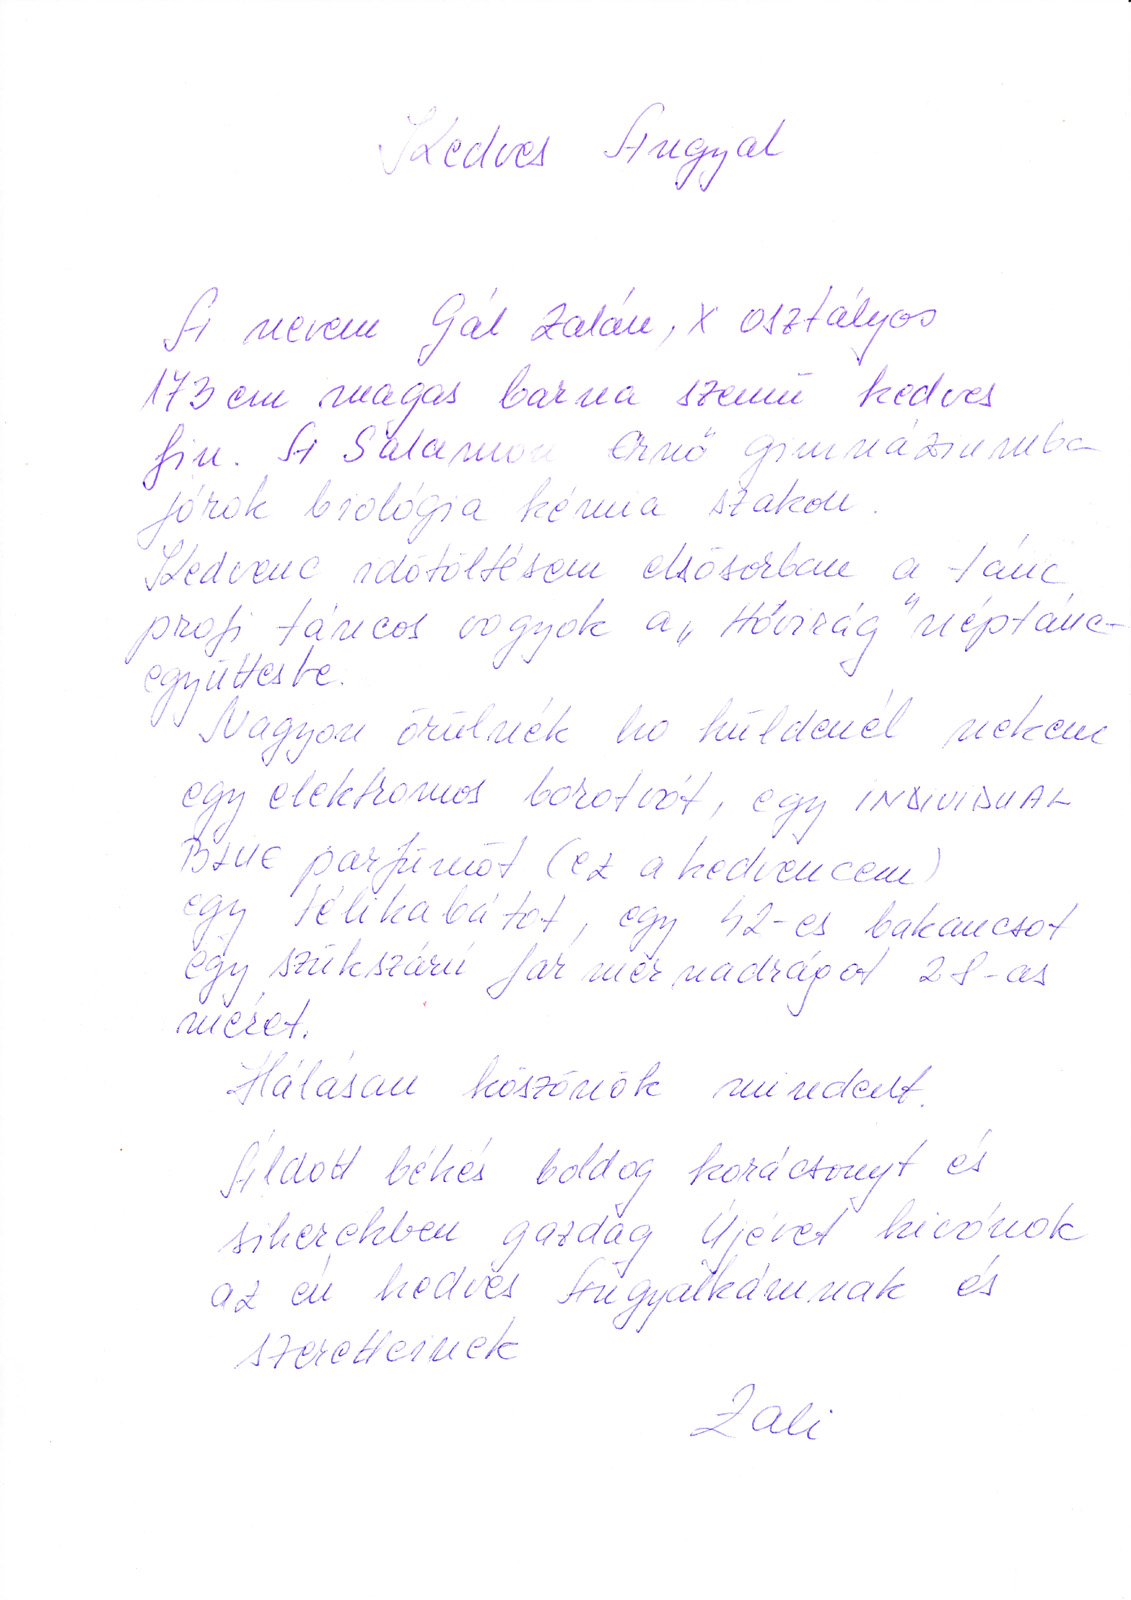 Kedves Angyal
A nevem Gál Zalán, X osztályos
173 cm magas barna szemű kedves
fiu. A Salamon Ernő gimnáziumba
járok biológia kémia szakon.
Kedvenc időtöltésem elsősorban a tánc
profi táncos vagyok a „Hóvirág" néptánc-
együttesbe.
Nagyon örülnék ha küldenél nekem
egy elektromos borotvát, egy INDIVIDUAL
BLUE parfümöt (ez a kedvencem)
egy télikabátot, egy 42-es bakancsot
egy szűkszárú farmernadrágot 28-as
méret.
Hálásan köszönök mindent.
Áldott békés boldog karácsonyt és
sikerekben gazdag Újévet kivánok
az én kedves Angyalkámnak és
szeretteinek
Zali